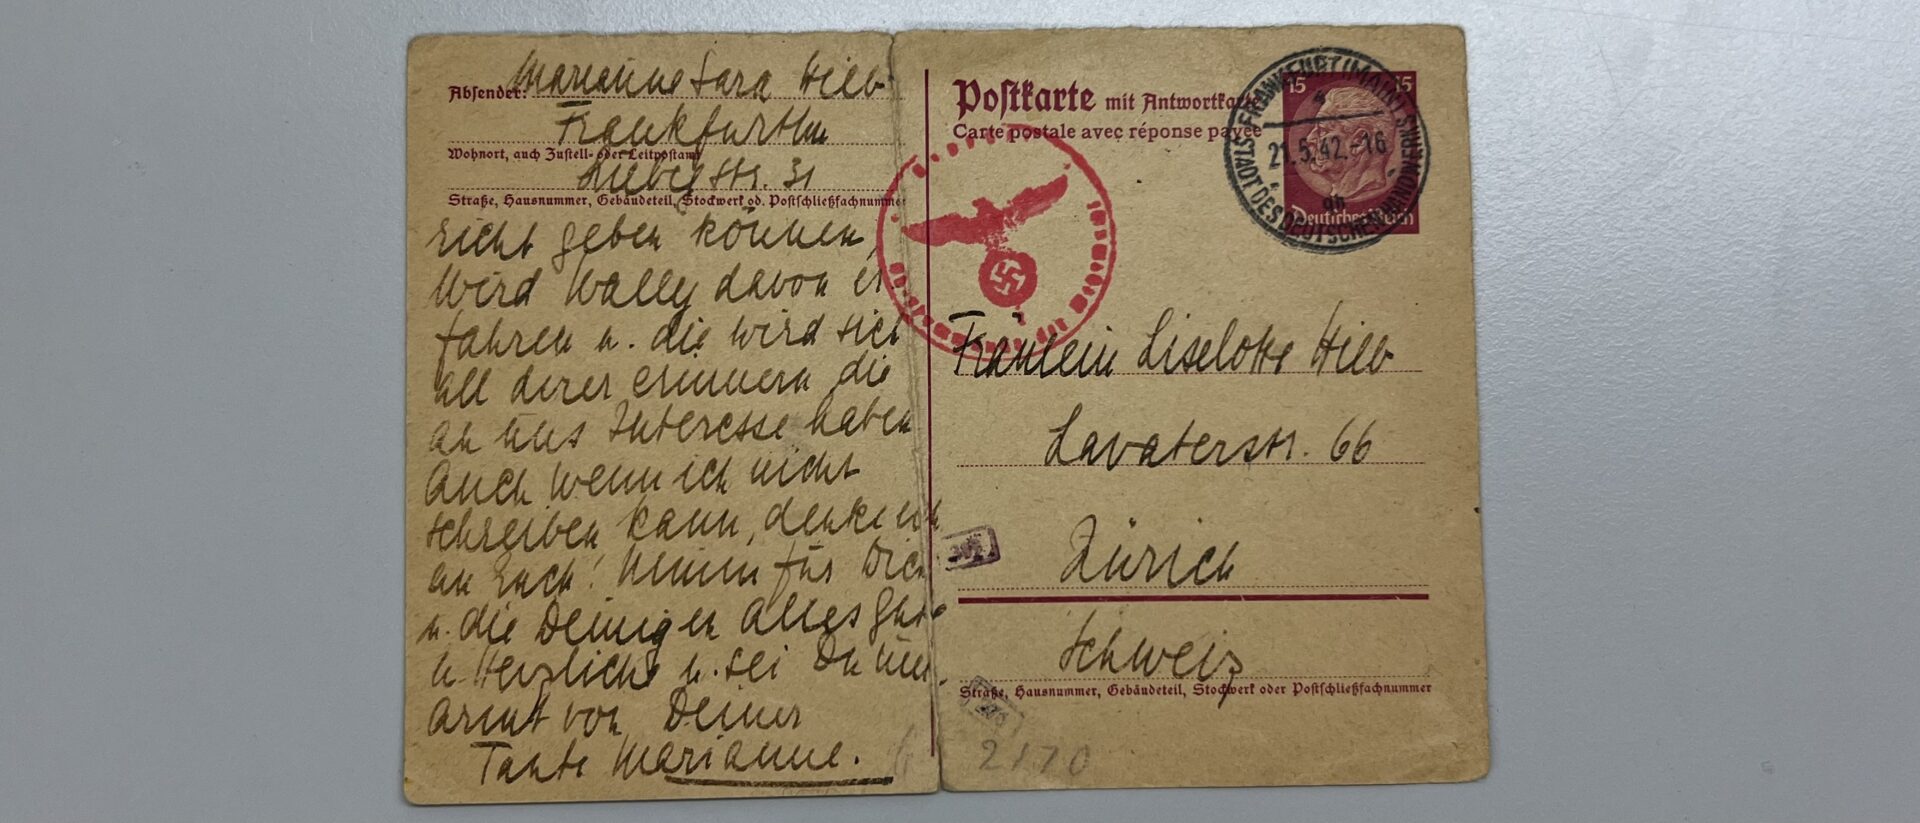 Absender: Marianne Sara Hilb
Frankfurt/M
Wohnort, auch Zustell- oder Leitpostamt
Liebigstr. 31
Straße, Hausnummer, Gebäudeteil, Stockwerk od. Postschließfachnummer
richt geben können,
wird Wally davon er
fahren u. die wird sich
all derer erinnern die
an uns Interesse haben
Auch wenn ich nicht
schreiben kann, denke ich
an Euch! Nimm für Dich
u. die Deinigen alles Gute
u. Herzliche u. sei Du um
armt von Deiner
Tante Marianne.
Postkarte mit Antwortkarte
Carte postale avec réponse payée
15 15
Deutsches Reich
FRANKFURT (MAIN)
21.5.42.-16
STADT DES DEUTSCHEN HANDWERKS
Fräulein Liselotte Hilb
Lavaterstr. 66
Zürich
Schweiz
Straße, Hausnummer, Gebäudeteil, Stockwerk oder Postschließfachnummer
2170